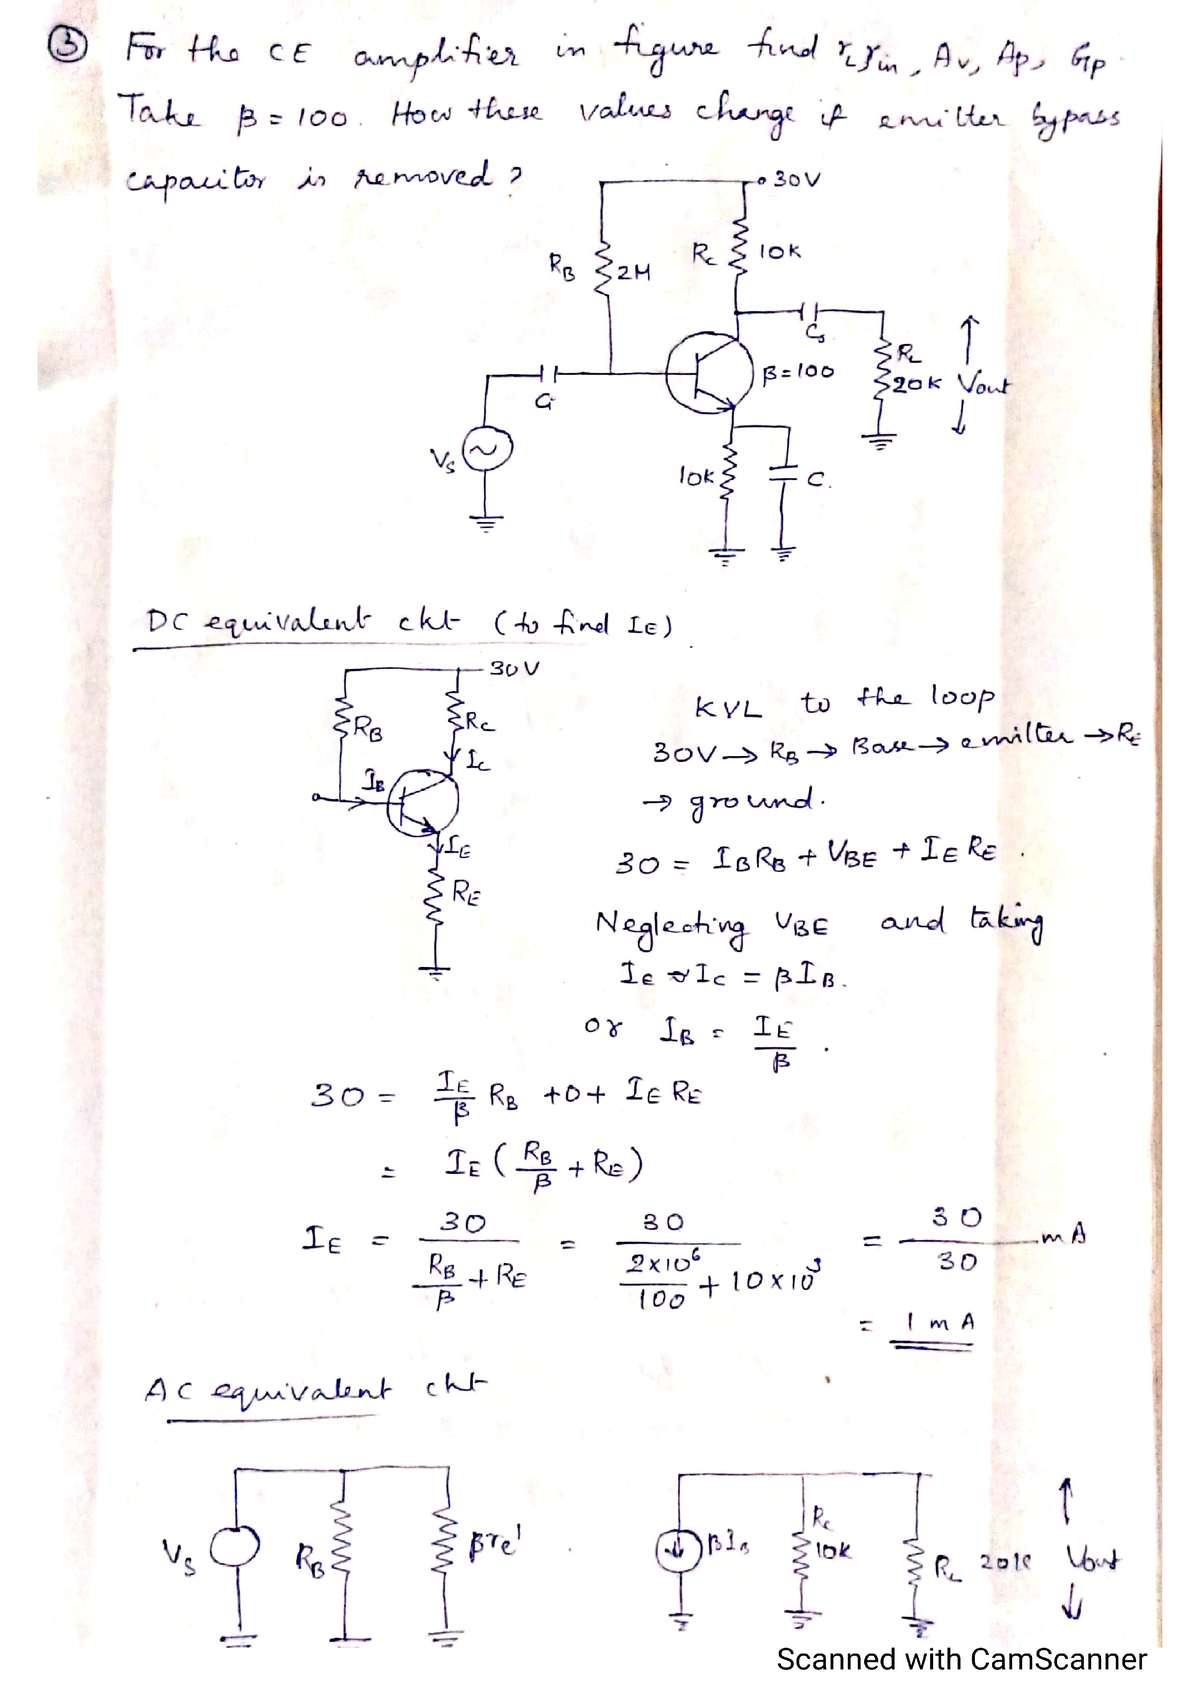 ③ For the CE amplifier in figure find rL, rin, Av, Ap, Gp.
Take β = 100. How these values change if emitter bypass
capacitor is removed ?
30V
RB 2M
Rc 10K
Cs
β=100
RL
20K Vout
Ci
Vs
10K
C.
DC equivalent ckt (to find IE)
30V
RB
Rc
Ic
IB
IE
RE
KVL to the loop
30V → RB → Base → emitter → RE
→ ground.
30 = IBRB + VBE + IE RE .
Neglecting VBE and taking
IE ≈ Ic = βIB.
or IB = IE/β .
30 = IE/β RB + 0 + IE RE
= IE ( RB/β + RE)
IE = 30/(RB/β + RE) = 30/(2×10⁶/100 + 10×10³) = 30/30 mA
= 1 mA
AC equivalent ckt
Vs
RB
βre'
βIB
Rc
10K
RL 20K Vout
Scanned with CamScanner